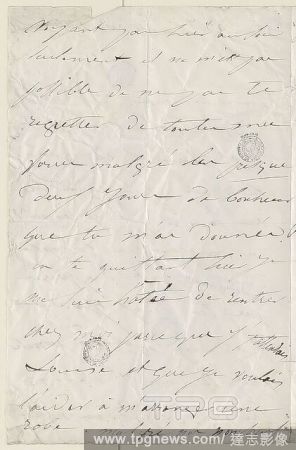 n'ayant pas
seulement il ne m'est pas
possible de ne pas te
regretter de toutes mes
forces malgré les presque
deux jours de bonheur
que tu m'as donnés
en te quittant hier je
me suis hâtée de rentrer
chez moi parce que j'attendais
Louise et que je voulais
l'aider à m'arranger une
robe
TPG
www.tpgnews.com / 達志影像